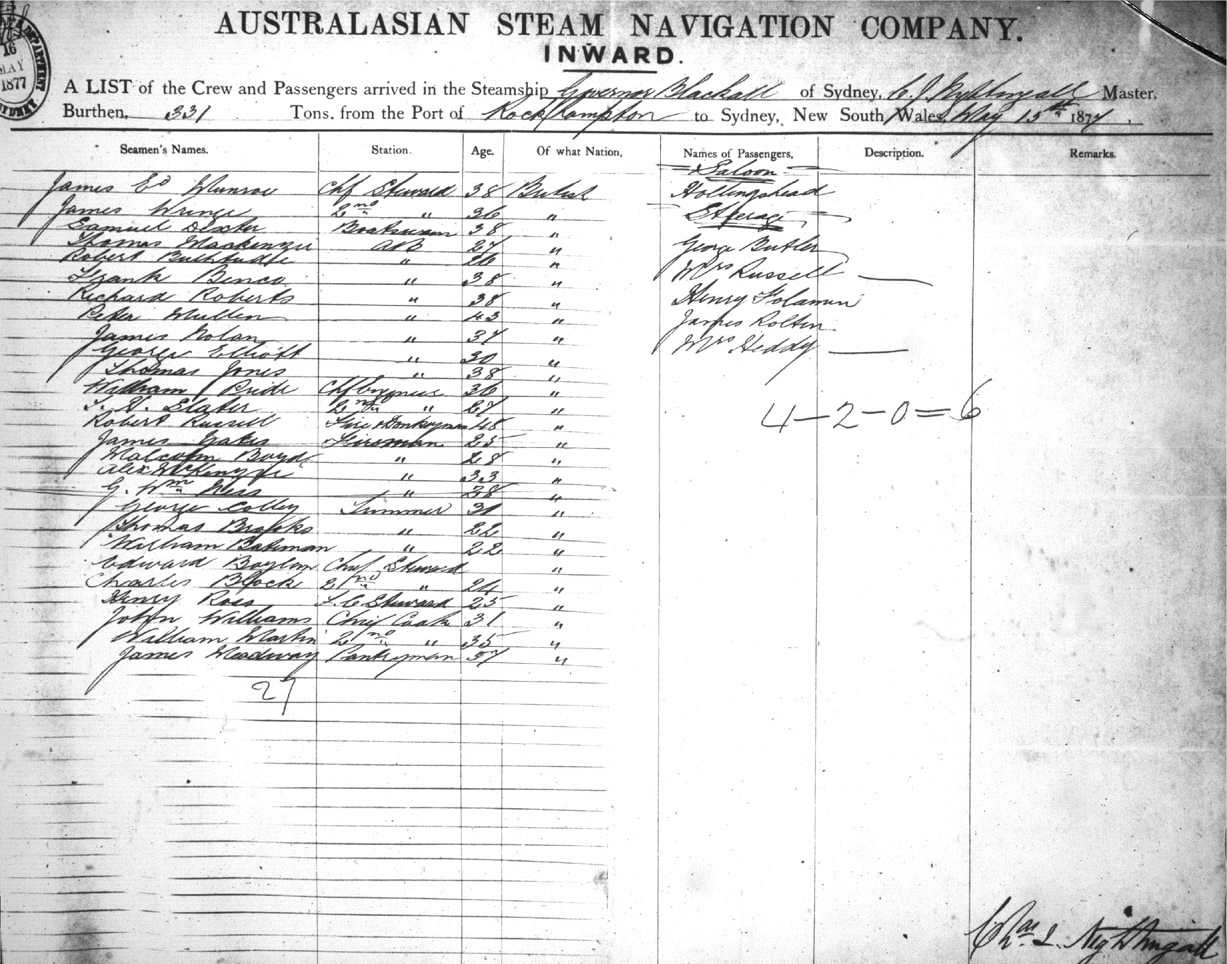 AUSTRALASIAN STEAM NAVIGATION COMPANY.
INWARD.
16
MAY
1877
A LIST of the Crew and Passengers arrived in the Steamship Governor Blackall of Sydney, C. J. Nightingall Master.
Burthen, 331 Tons. from the Port of Rockhampton to Sydney, New South Wales, May 15th 1877.
Seamen's Names. Station. Age. Of what Nation, Names of Passengers, Description. Remarks.
Saloon
James Munroe Chf Steward 38 British Hollingshead
James 2nd " 36 " Steerage
Samuel Dexter Boatswain 38 "
Thomas Mackenzie AB 27 " George Butler
Robert " 26 "
Frank " 38 " Mrs Russell
Richard Roberts " 38 " Henry
Peter Mullen " 43 "
James Nolan " 37 " James Rolten
George Elliott " 30 " Mrs Heddy
Thomas Jones " 38 "
William Pride Chf 36 "
Slater 2nd " 27 " 4-2-0=6
Robert Russell Fire & Donkeyman 48 "
James Gates Fireman 25 "
Malcolm Boyd " 28 "
Alex McKenzie " 33 "
G. Wm " 38 "
George Colley Trimmer 30 "
Thomas Brooks " 22 "
William Bateman " 22 "
Edward Boylan Chief Steward "
Charles Block 2nd " 24 "
Henry Ross F. C. Steward 25 "
John Williams Chief Cook 31 "
William Martin 2nd " 35 "
James Meadway Pantryman 37 "
27
Chas J. Nightingall